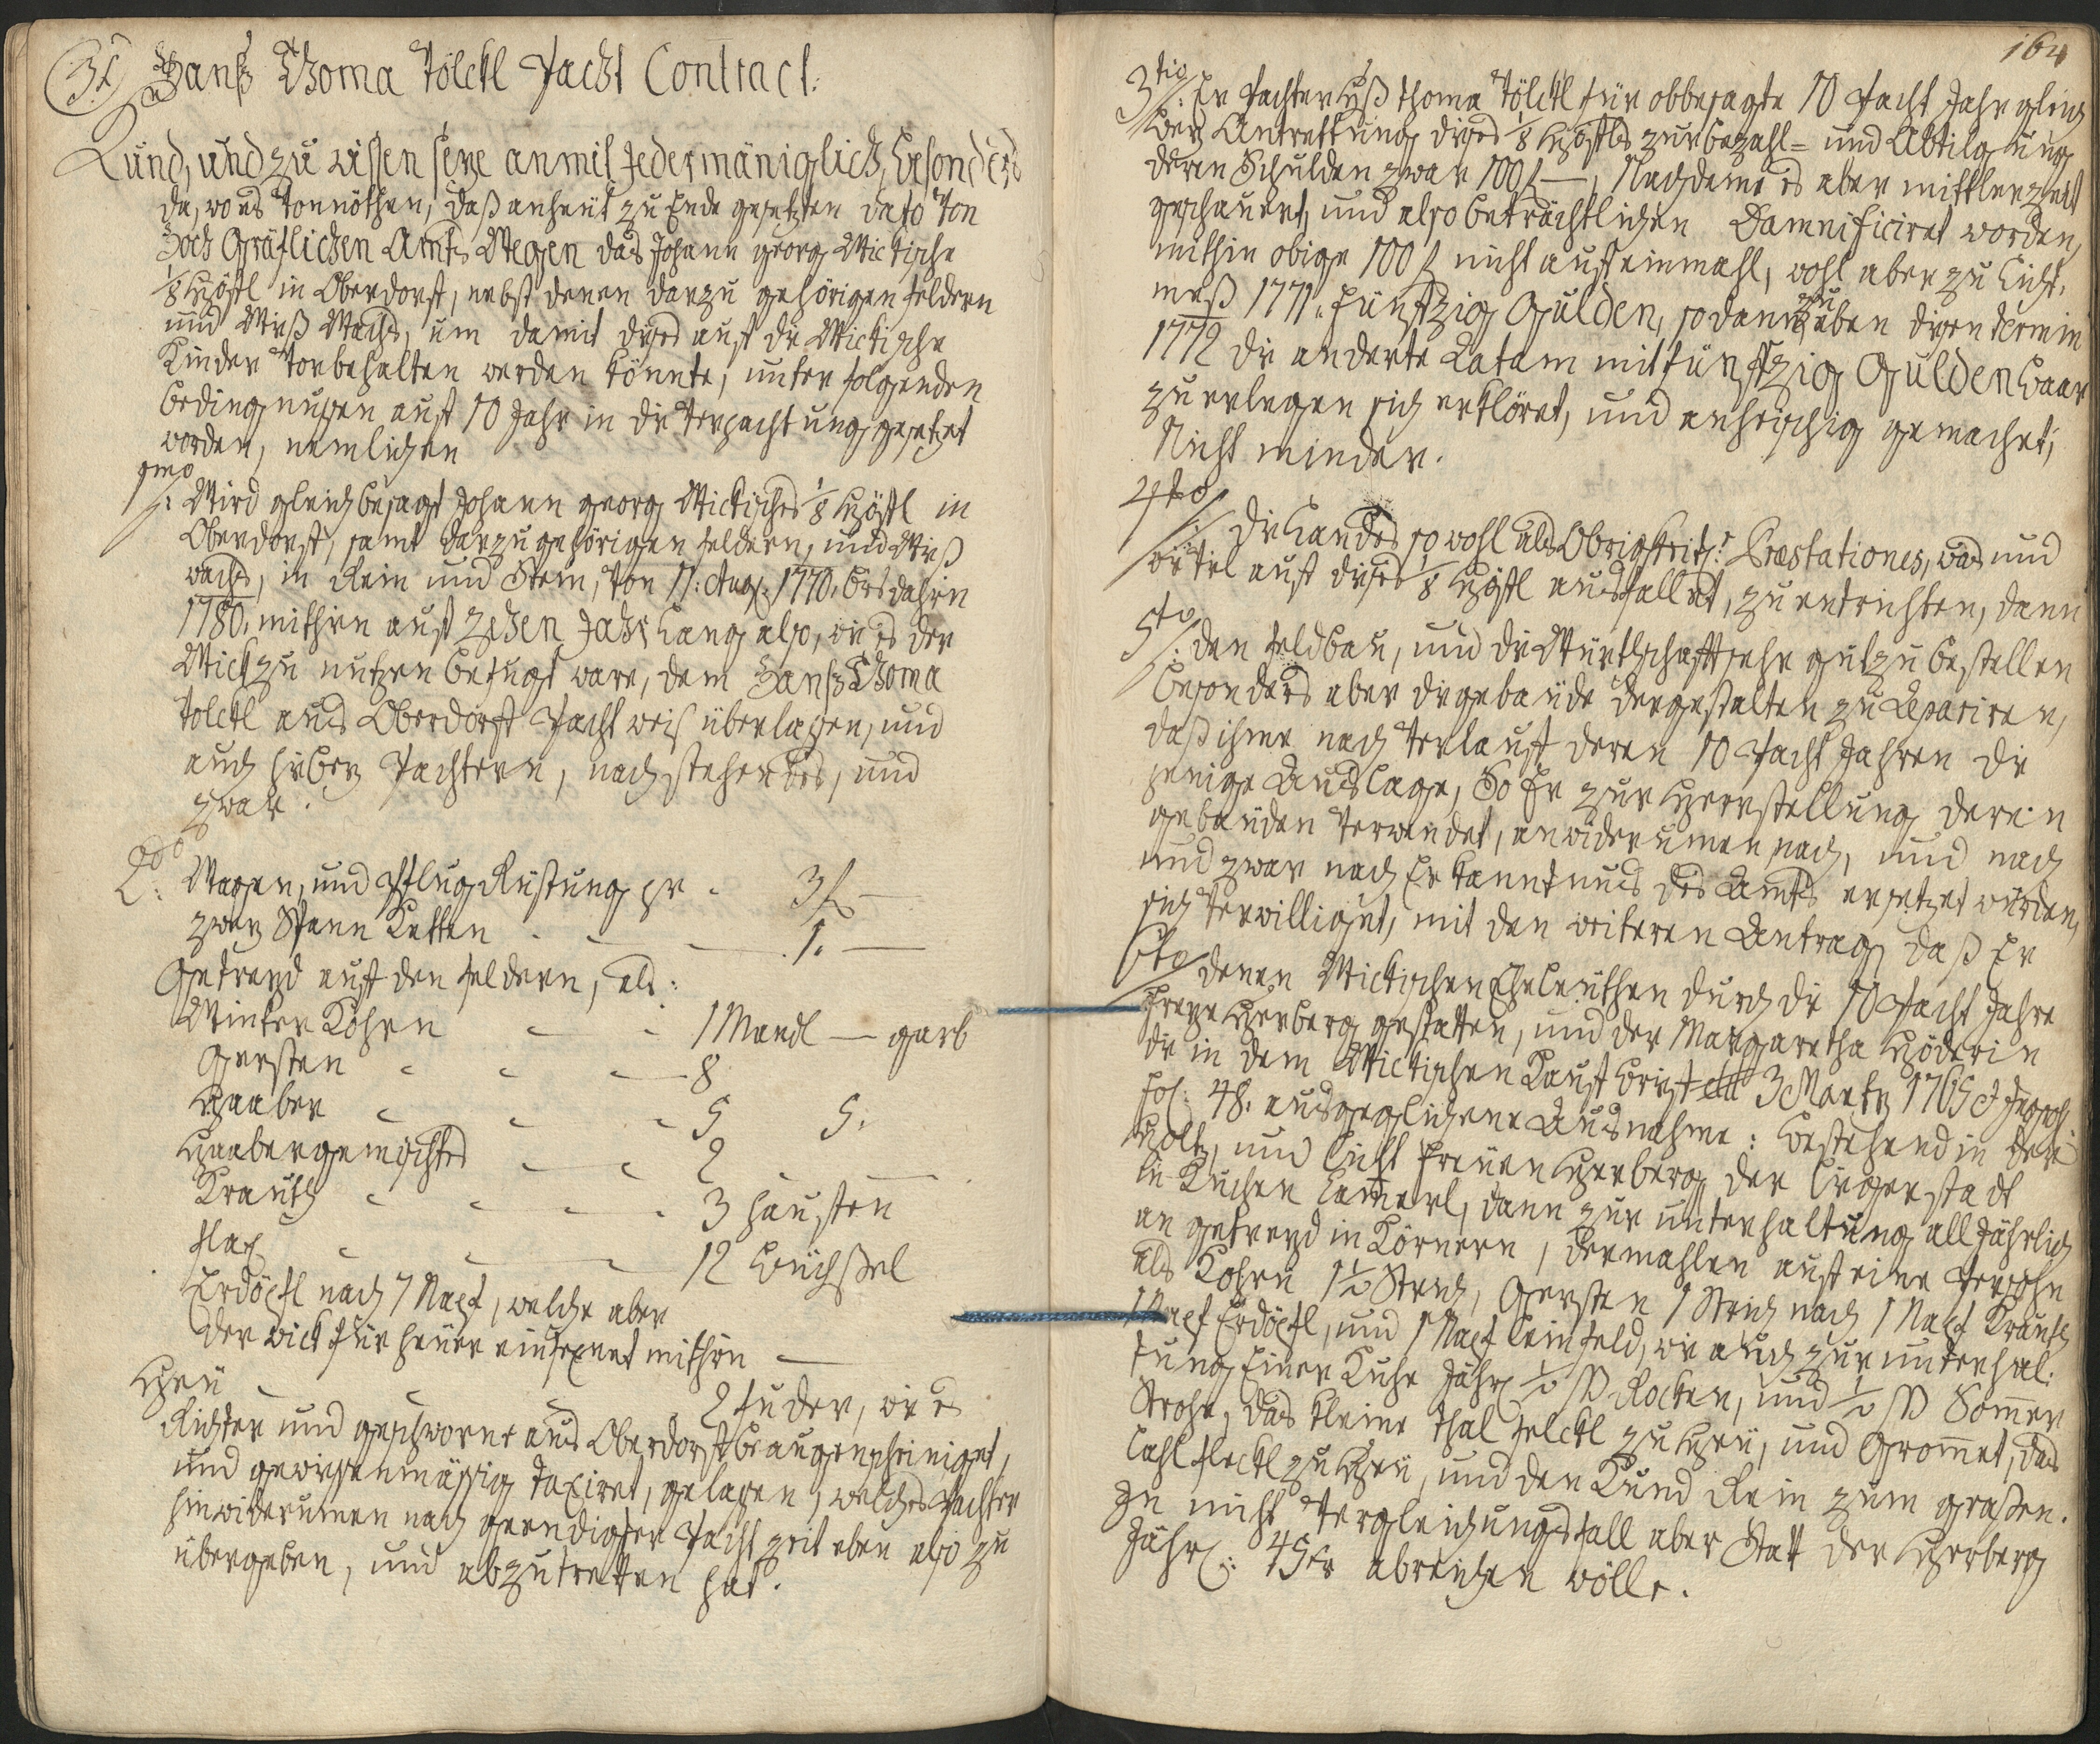 31
Hanß Thoma Tölckl Pacht Contract:
Kund, und zu wissen seye anmit Jedermäniglich, besonders
da, wo es vonnöthen, daß anheüt zu Ende gesetzten dato von
Hoch Gräflichen Amts Wegen das Johann Georg Wickische
1/8 Höfl in Oberdorf, nebst denen darzu gehörigen feldern
und Wieß Wachs, um damit dises auf die Wickische
Kinder vorbehalten werden könnte, unter folgenden
bedingnußen auf 10 Jahr in die Verpachtung gesetzet
worden, nemlichen
1mo
Wird gleich besagt Johann Georg Wickisches 1/8 Höfl in
Oberdorf, samt darzu gehörigen feldern, und Wieß
wachs, in Rein und Stein, von 11: Aug: 1770. bis dahin
1780. mithin auf Zehen Jahr Lang also, wie es der
Wick zu nutzen befugt ware, dem Hanß Thoma
Tölckl aus Oberdorf Pacht weis überlaßen, und
auch hiebey Pachtern, nachstehendes, und
zwar.
2do: Wagen, und Pflug Rüstung pr - 3 f —
zwey Spann Ketten - - — 1. —
Getreyd auf den feldern, als:
Winter Kohrn - - 1 Mandl — garb
Gersten - - — 8
Haaber - - - 5 5.
Haabergemischtes - - 2 —
Krauth - - - - 3 hauffen
flax - - — 12 büchßel
Erdöpfl nach 7 Napf, welche aber
der wick für heüer ausfexnet mithin —
Heü - - - 2 fuder, wie es
Richter und geschworne aus Oberdorf beaugenscheiniget,
und gewissenmäßig taxiret, gelaßen, welches Pachter
hinwiderumen nach geendigter Pachtzeit eben also zu
übergeben, und abzutretten hat.
164
3tio: Er Pachter Hß thoma Tölckl für obbesagte 10 Pacht Jahr gleich
bey Antrettung dises 1/8 Höfls zur bezahl= und Abtilgung
deren Schulden zwar 100 f —, Nachdeme es aber mittlerzeit
geschauert, und also beträchtlichen Damnificiret worden,
mithin obige 100 f nicht auf einmahl, wohl aber zu Licht,
meß 1771. Fünfzig Gulden, sodann zu eben disen termin
1772 die anderte Ratam mit fünfzig Gulden baar
zu erlegen sich erklöret, und anheischig gemachet;
Nicht minder.
4to: Die Landes so wohl als Obrigkeitl: Præstationes, was und
wie viel auf dises 1/8 Höfl ausfallet, zu entrichten, dann
5to: den feldbau, und die Würthschafft sehr gut zu bestellen
besonders aber die gebaüde dergestalten zu Repariren,
daß ihme nach Verlauf deren 10 Pacht Jahren die
jenige Auslage, So Er zur Herrstellung deren
gebaüden verwendet, anwiderumen nach, und nach
und zwar nach Erkanntnus des Amts ersetzet würden,
sich verwilliget, mit den weiteren Antrag, daß Er
6to denen Wickischen Eheleüthen durch die 10 Pacht Jahre
freye Herberg gestatten, und der Margaretha Höderin
die in dem Wickischen Kauf brief 3 Martz 1765
fol: 48. ausgeglichene Ausnahme: bestehend in der
Holtz, und Licht freüen Herberg der Ligerstadt
in Kuchen Camerl, dann zur unterhaltung alljährlich
an getreyd in Körnern, dermahlen auf eine Persohn
als Kohrn 1 1/2 Strich, Gersten 1 Strich nach 1 Napf Krauth
1 Napf Erdöpfl, und 1 Napf Leinfeld, wie auch zur unterhal:
tung Einer Kuhe Jährl 1/2 ß Rocken, und 1/2 ß Somer
Strohe, das kleine thal feldl zu Heü, und Gromet, das
Lahl fleckl zu Heü, und den Rund Rein zum graßen.
In nicht Vergleichungsfall aber Statt der Herberg
Jährl: 45 xr abreichen wölle.